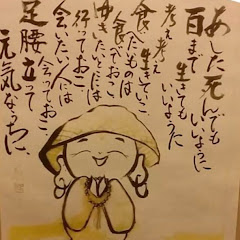 あした死んでも
いいように
百まで生きても
いいように
考え考え
生きていこ
食べたものは
食べておこ
ゆきたいとこには
行っておこ
会いたい人には
会っておこ
足腰立って
元気なうちに